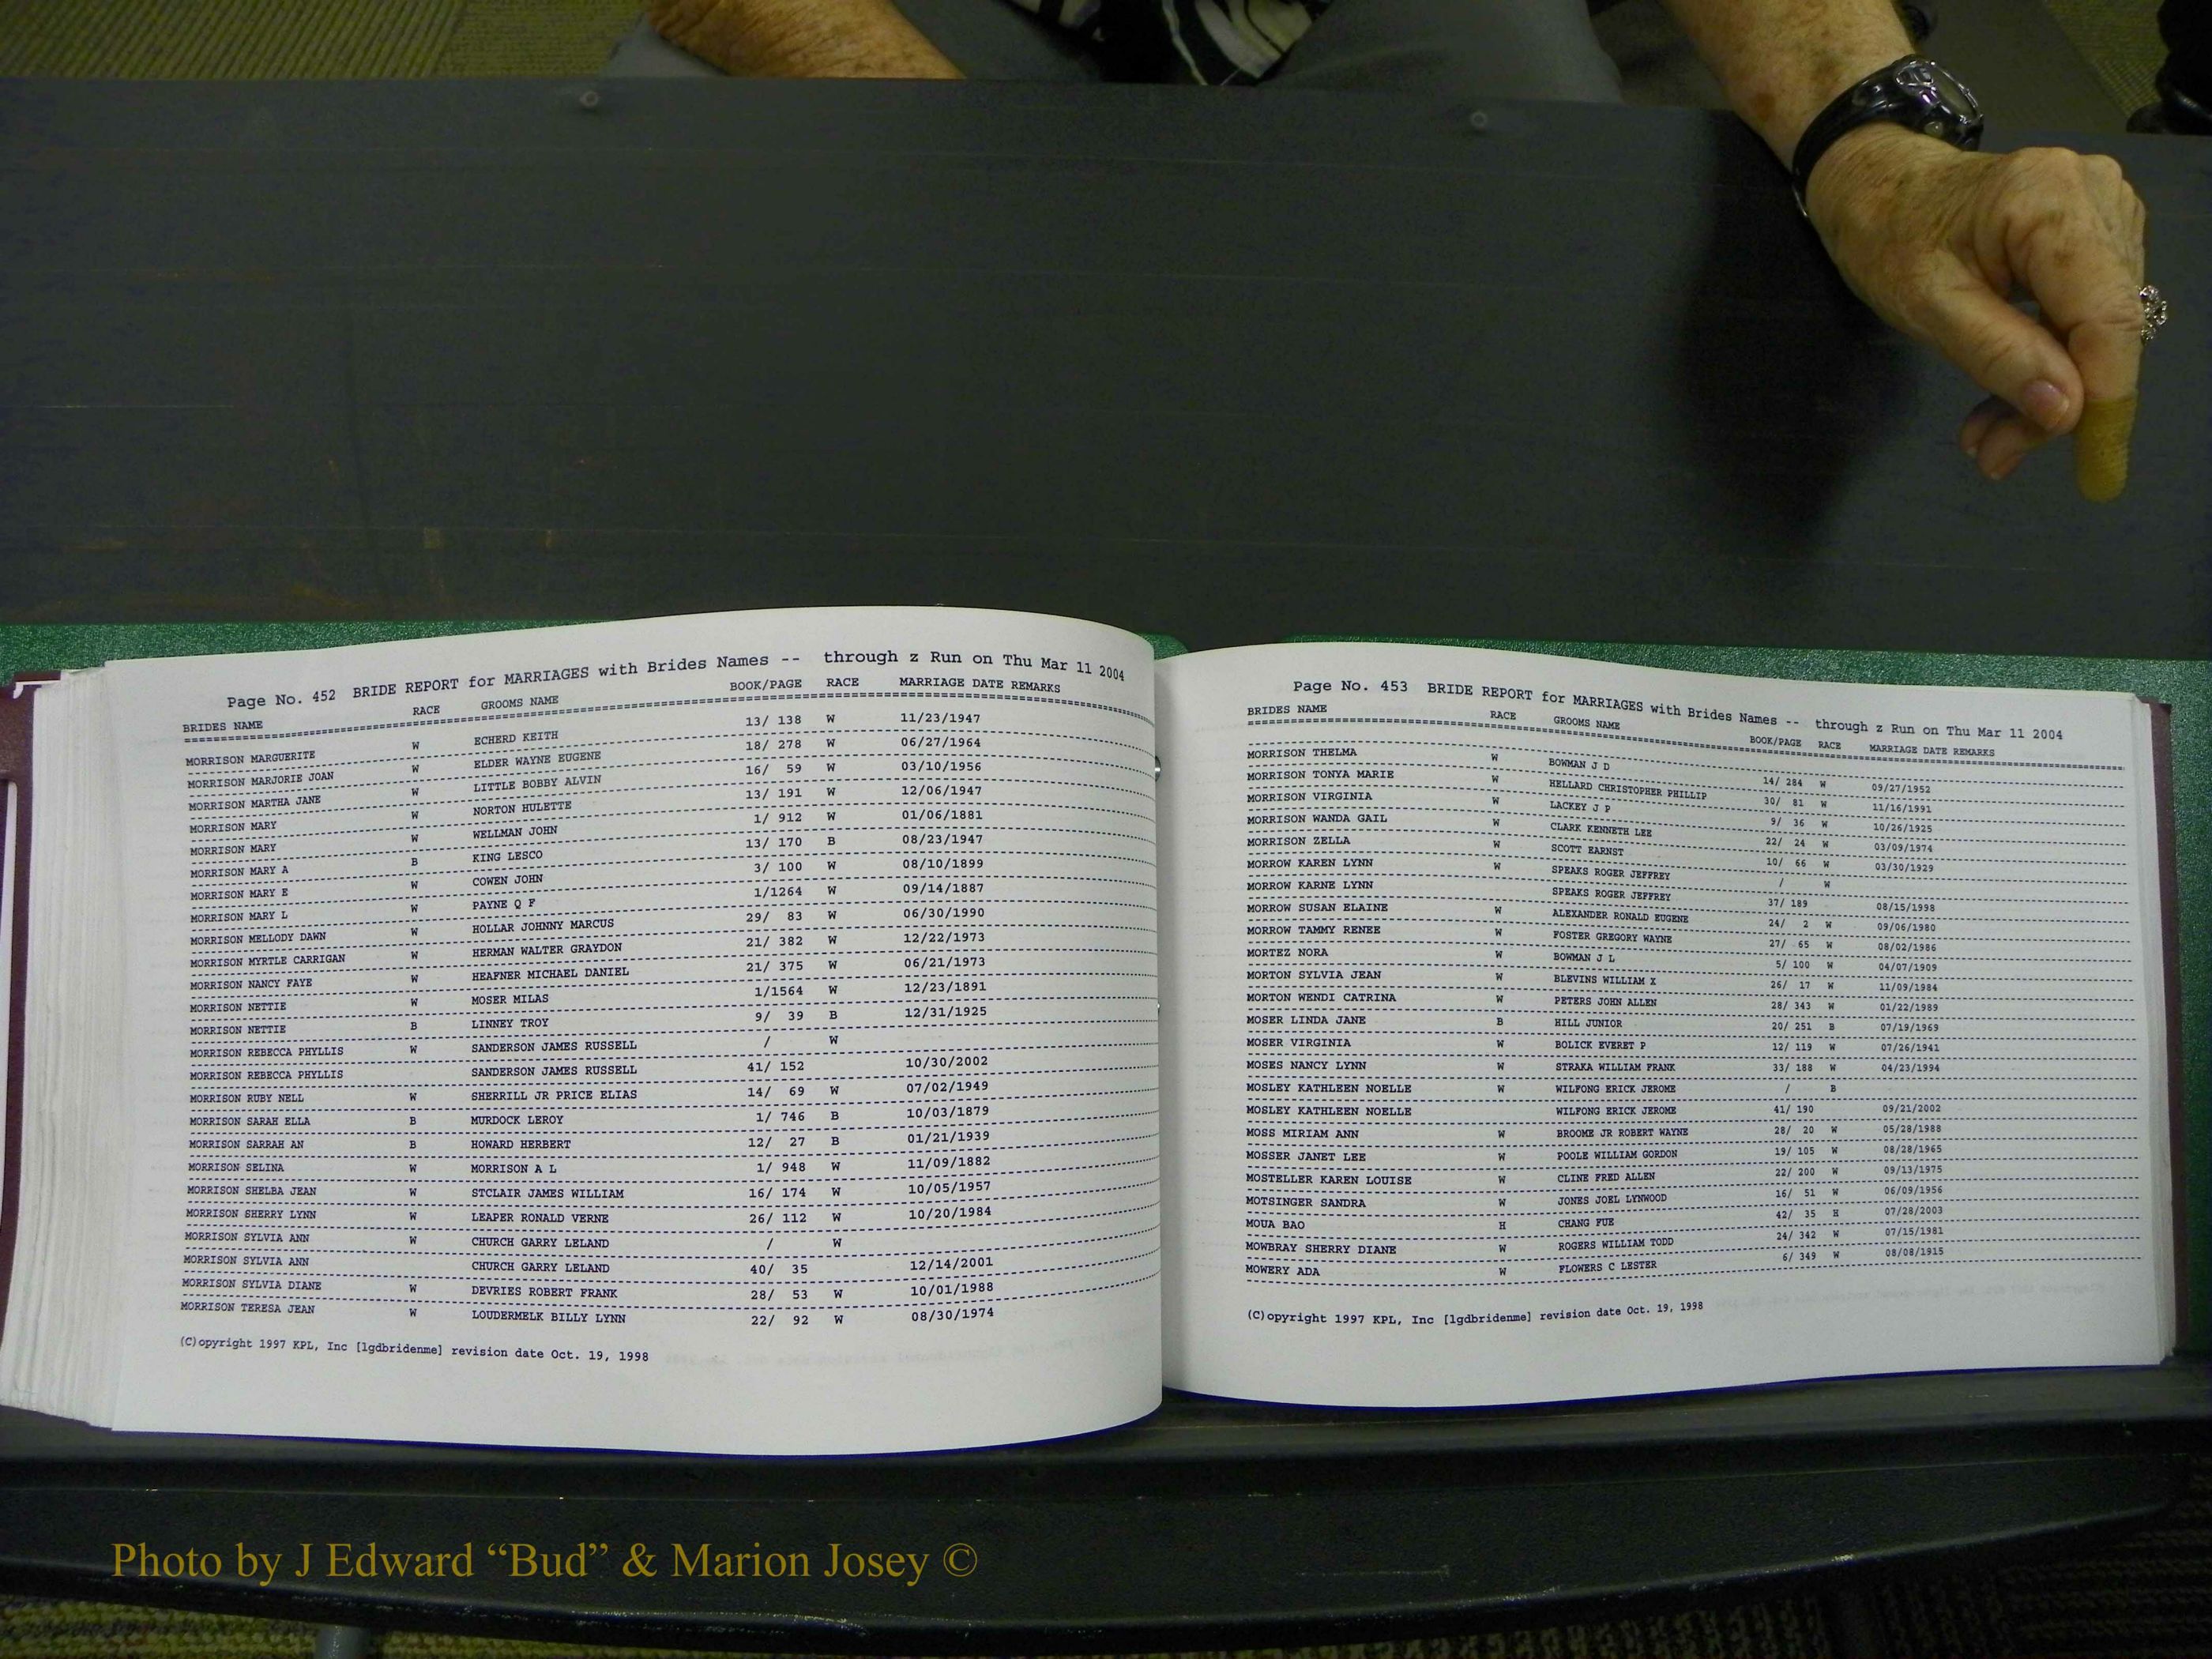 Page No. 452 BRIDE REPORT for MARRIAGES with Brides Names -- through z Run on Thu Mar 11 2004
BRIDES NAME RACE GROOMS NAME BOOK/PAGE RACE MARRIAGE DATE REMARKS
MORRISON MARGUERITE W ECHERD KEITH 13/ 138 W 11/23/1947
MORRISON MARJORIE JOAN W ELDER WAYNE EUGENE 18/ 278 W 06/27/1964
MORRISON MARTHA JANE W LITTLE BOBBY ALVIN 16/ 59 W 03/10/1956
MORRISON MARY W NORTON HULETTE 13/ 191 W 12/06/1947
MORRISON MARY W WELLMAN JOHN 1/ 912 W 01/06/1881
MORRISON MARY A B KING LESCO 13/ 170 B 08/23/1947
MORRISON MARY E W COWEN JOHN 3/ 100 W 08/10/1899
MORRISON MARY L W PAYNE Q F 1/1264 W 09/14/1887
MORRISON MELLODY DAWN W HOLLAR JOHNNY MARCUS 29/ 83 W 06/30/1990
MORRISON MYRTLE CARRIGAN W HERMAN WALTER GRAYDON 21/ 382 W 12/22/1973
MORRISON NANCY FAYE W HEAFNER MICHAEL DANIEL 21/ 375 W 06/21/1973
MORRISON NETTIE W MOSER MILAS 1/1564 W 12/23/1891
MORRISON NETTIE B LINNEY TROY 9/ 39 B 12/31/1925
MORRISON REBECCA PHYLLIS W SANDERSON JAMES RUSSELL / W
MORRISON REBECCA PHYLLIS SANDERSON JAMES RUSSELL 41/ 152 10/30/2002
MORRISON RUBY NELL W SHERRILL JR PRICE ELIAS 14/ 69 W 07/02/1949
MORRISON SARAH ELLA B MURDOCK LEROY 1/ 746 B 10/03/1879
MORRISON SARRAH AN B HOWARD HERBERT 12/ 27 B 01/21/1939
MORRISON SELINA W MORRISON A L 1/ 948 W 11/09/1882
MORRISON SHELBA JEAN W STCLAIR JAMES WILLIAM 16/ 174 W 10/05/1957
MORRISON SHERRY LYNN W LEAPER RONALD VERNE 26/ 112 W 10/20/1984
MORRISON SYLVIA ANN W CHURCH GARRY LELAND / W
MORRISON SYLVIA ANN CHURCH GARRY LELAND 40/ 35 12/14/2001
MORRISON SYLVIA DIANE W DEVRIES ROBERT FRANK 28/ 53 W 10/01/1988
MORRISON TERESA JEAN W LOUDERMELK BILLY LYNN 22/ 92 W 08/30/1974
(C)opyright 1997 KPL, Inc [lgdbridenme] revision date Oct. 19, 1998
Page No. 453 BRIDE REPORT for MARRIAGES with Brides Names -- through z Run on Thu Mar 11 2004
BRIDES NAME RACE GROOMS NAME BOOK/PAGE RACE MARRIAGE DATE REMARKS
MORRISON THELMA W BOWMAN J D 14/ 284 W 09/27/1952
MORRISON TONYA MARIE W HELLARD CHRISTOPHER PHILLIP 30/ 81 W 11/16/1991
MORRISON VIRGINIA W LACKEY J P 9/ 36 W 10/26/1925
MORRISON WANDA GAIL W CLARK KENNETH LEE 22/ 24 W 03/09/1974
MORRISON ZELLA W SCOTT EARNST 10/ 66 W 03/30/1929
MORROW KAREN LYNN W SPEAKS ROGER JEFFREY / W
MORROW KARNE LYNN SPEAKS ROGER JEFFREY 37/ 189 08/15/1998
MORROW SUSAN ELAINE W ALEXANDER RONALD EUGENE 24/ 2 W 09/06/1980
MORROW TAMMY RENEE W FOSTER GREGORY WAYNE 27/ 65 W 08/02/1986
MORTEZ NORA W BOWMAN J L 5/ 100 W 04/07/1909
MORTON SYLVIA JEAN W BLEVINS WILLIAM X 26/ 17 W 11/09/1984
MORTON WENDI CATRINA W PETERS JOHN ALLEN 28/ 343 W 01/22/1989
MOSER LINDA JANE B HILL JUNIOR 20/ 251 B 07/19/1969
MOSER VIRGINIA W BOLICK EVERET P 12/ 119 W 07/26/1941
MOSES NANCY LYNN W STRAKA WILLIAM FRANK 33/ 188 W 04/23/1994
MOSLEY KATHLEEN NOELLE W WILFONG ERICK JEROME / B
MOSLEY KATHLEEN NOELLE WILFONG ERICK JEROME 41/ 190 09/21/2002
MOSS MIRIAM ANN W BROOME JR ROBERT WAYNE 28/ 20 W 05/28/1988
MOSSER JANET LEE W POOLE WILLIAM GORDON 19/ 105 W 08/28/1965
MOSTELLER KAREN LOUISE W CLINE FRED ALLEN 22/ 200 W 09/13/1975
MOTSINGER SANDRA W JONES JOEL LYNWOOD 16/ 51 W 06/09/1956
MOUA BAO H CHANG FUE 42/ 35 H 07/28/2003
MOWBRAY SHERRY DIANE W ROGERS WILLIAM TODD 24/ 342 W 07/15/1981
MOWERY ADA W FLOWERS C LESTER 6/ 349 W 08/08/1915
(C)opyright 1997 KPL, Inc [lgdbridenme] revision date Oct. 19, 1998
Photo by J Edward “Bud” & Marion Josey ©